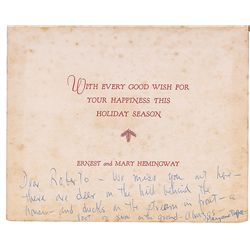 WITH EVERY GOOD WISH FOR
YOUR HAPPINESS THIS
HOLIDAY SEASON
ERNEST AND MARY HEMINGWAY
Dear Roberto - We miss you out here -
there are deer on the hill behind the
house - and ducks on the stream in front - a
lot of snow on the ground -